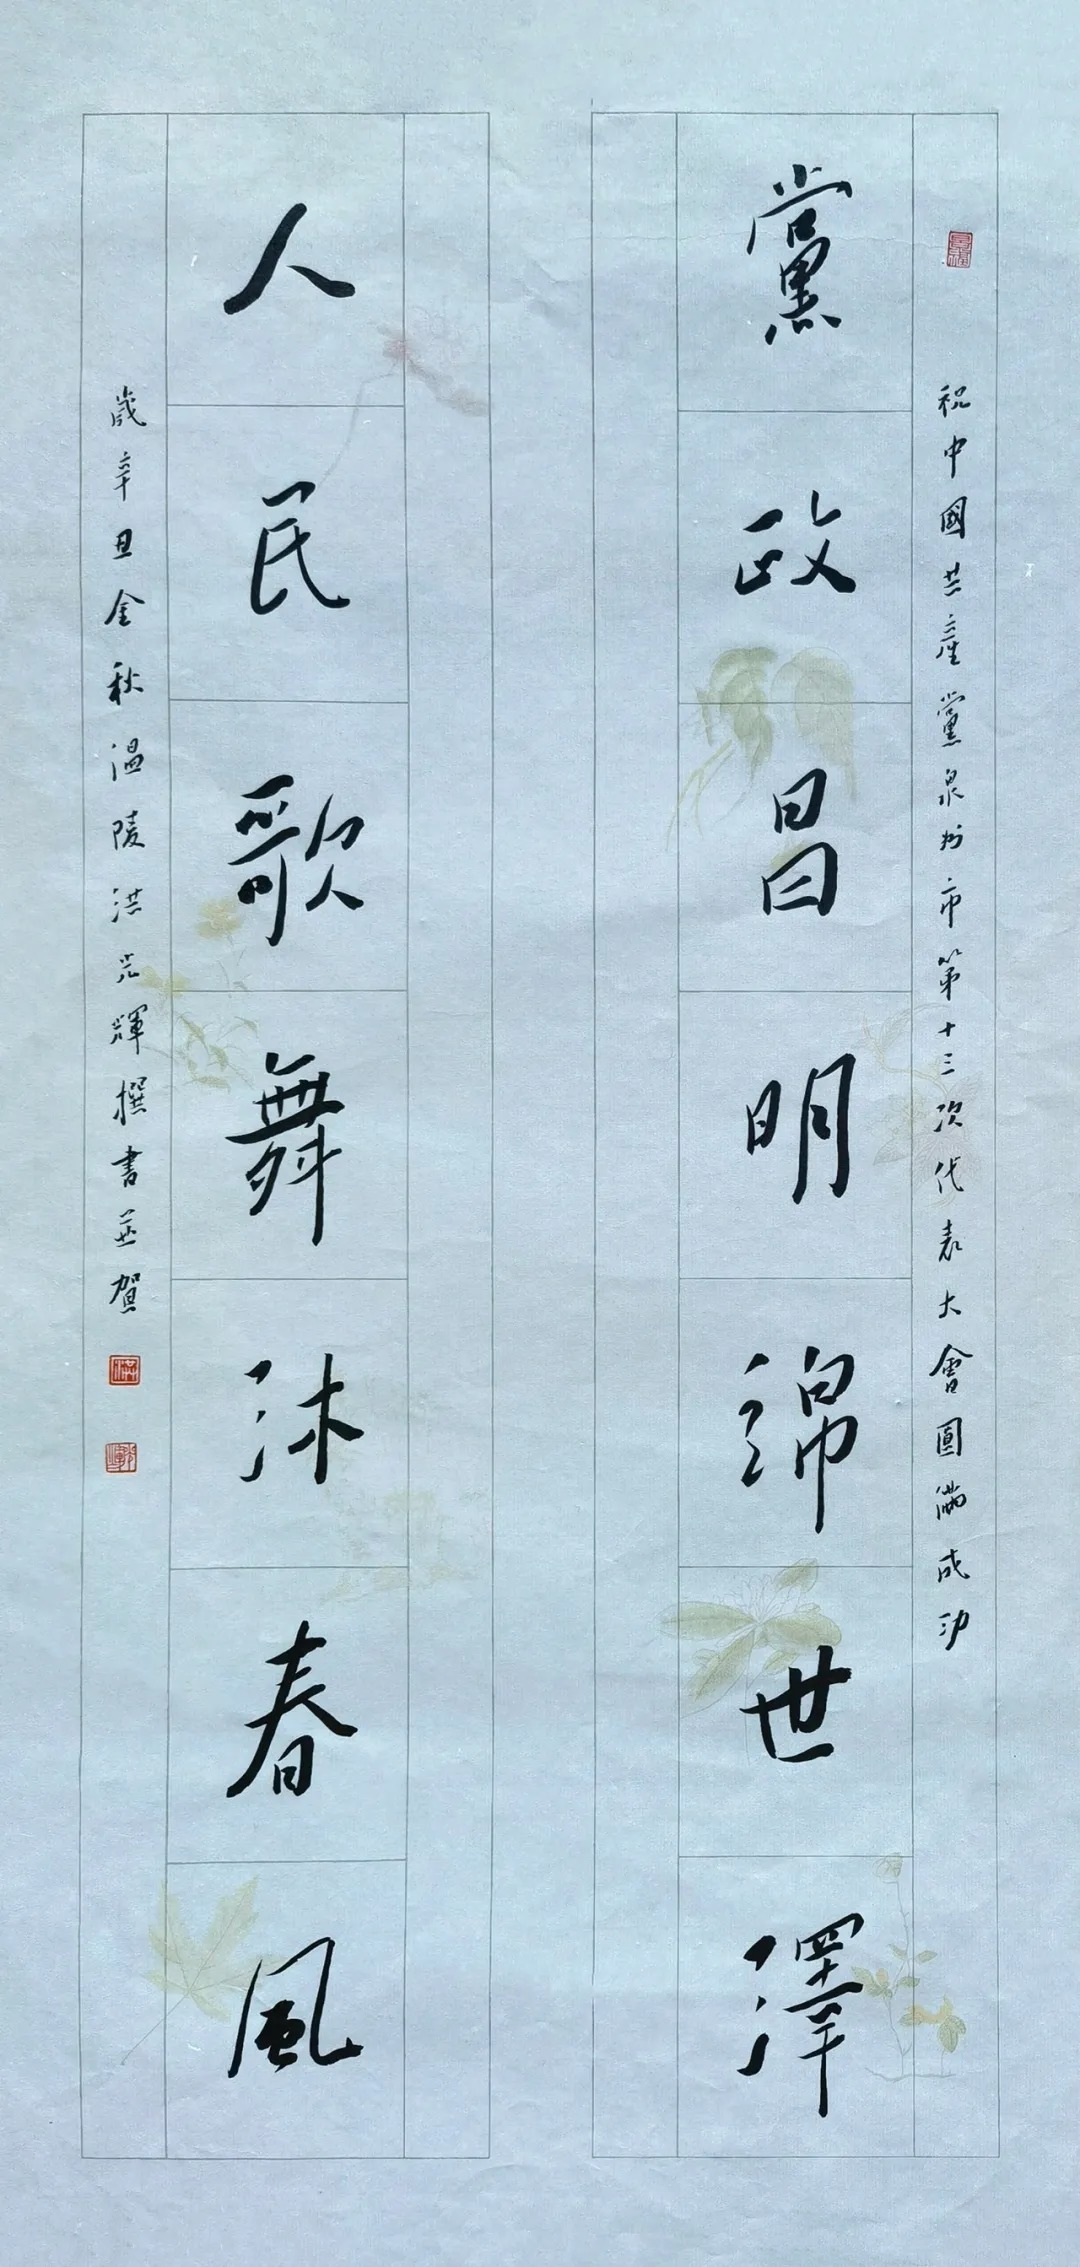 祝中國共產黨泉州市第十三次代表大會圓滿成功
黨政昌明綿世澤
人民歌舞沐春風
歲辛丑金秋溫陵洪光輝撰書並賀